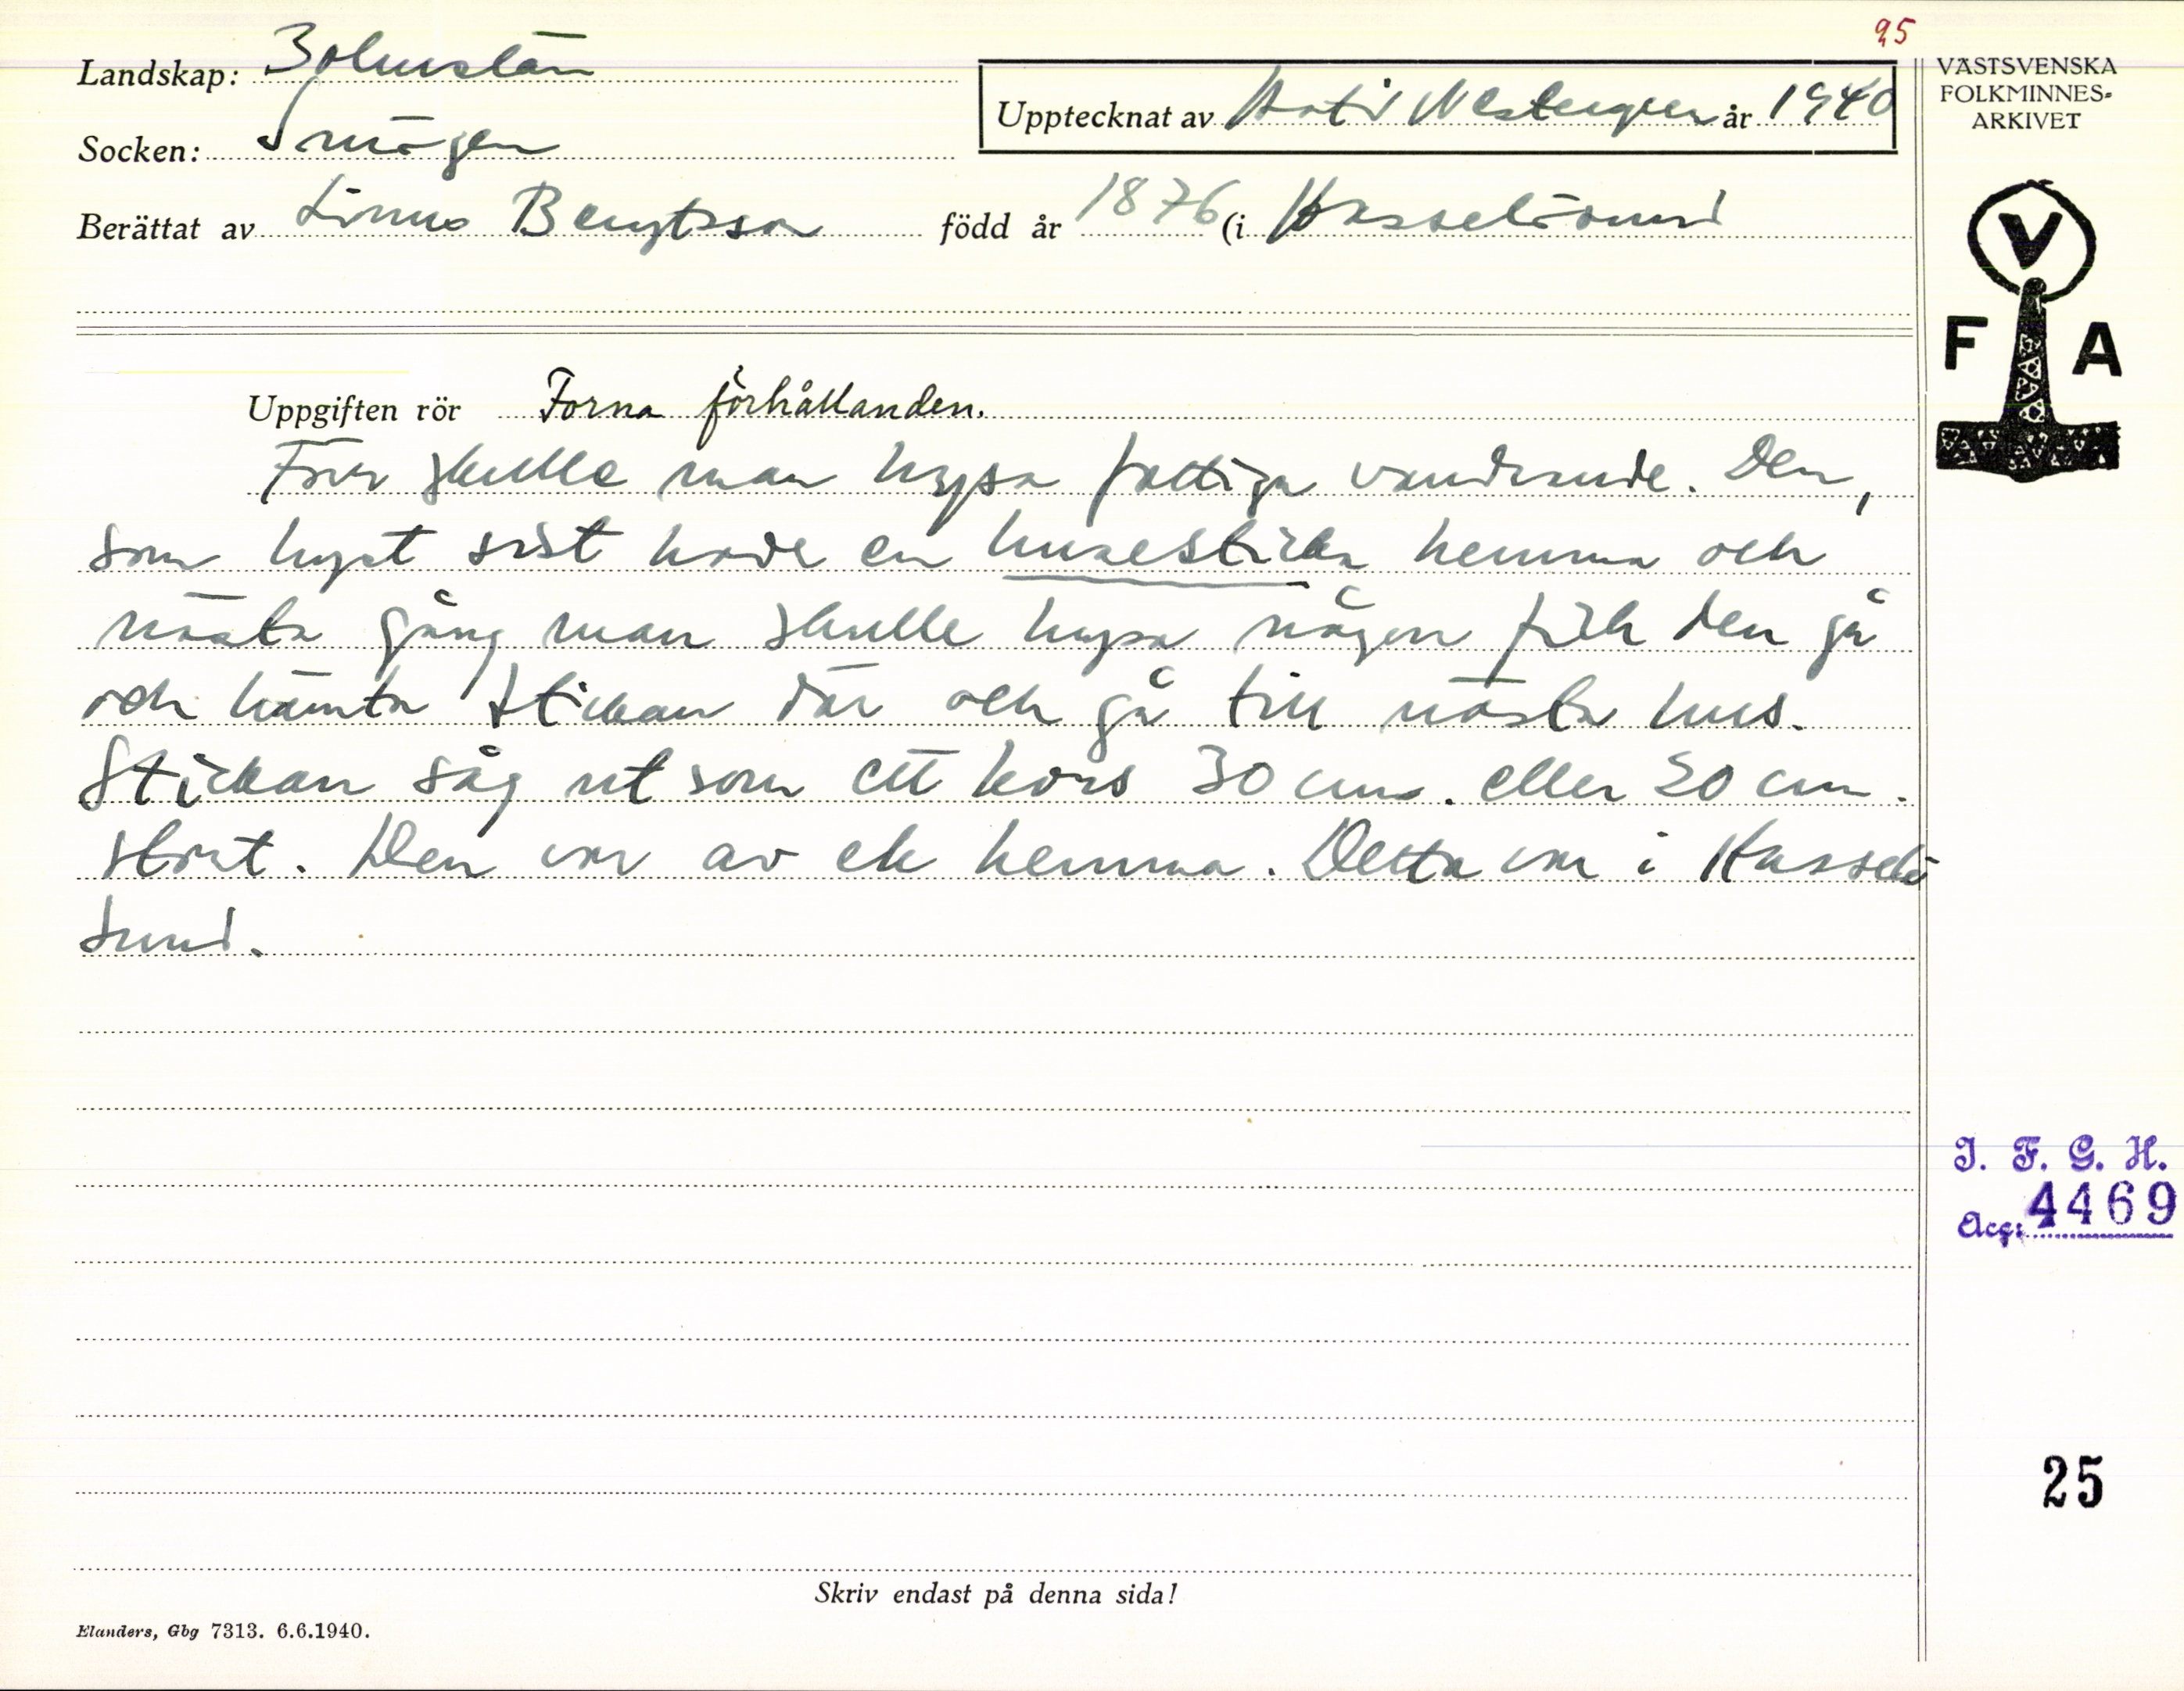 95
Landskap: Bohuslän
Socken: Smögen
Upptecknat av Astrid Westergren år 1940
Berättat av Linus Bengtsson född år 1876 (i Hasselösund
Uppgiften rör Forna förhållanden.
Förr skulle man hysa fattiga vandrande. Den,
som hyst sist hade en husesticka hemma och
nästa gång man skulle hysa någon fick den gå
och hämta stickan där och gå till nästa hus.
Stickan såg ut som ett kors 30 cm. eller 20 cm.
stort. Den var av ek hemma. Detta var i Hasselö
sund.
Skriv endast på denna sida!
Elanders, Gbg 7313. 6.6.1940.
VÄSTSVENSKA
FOLKMINNES-
ARKIVET
V
F A
I. F. G. H.
Acc: 4469
25